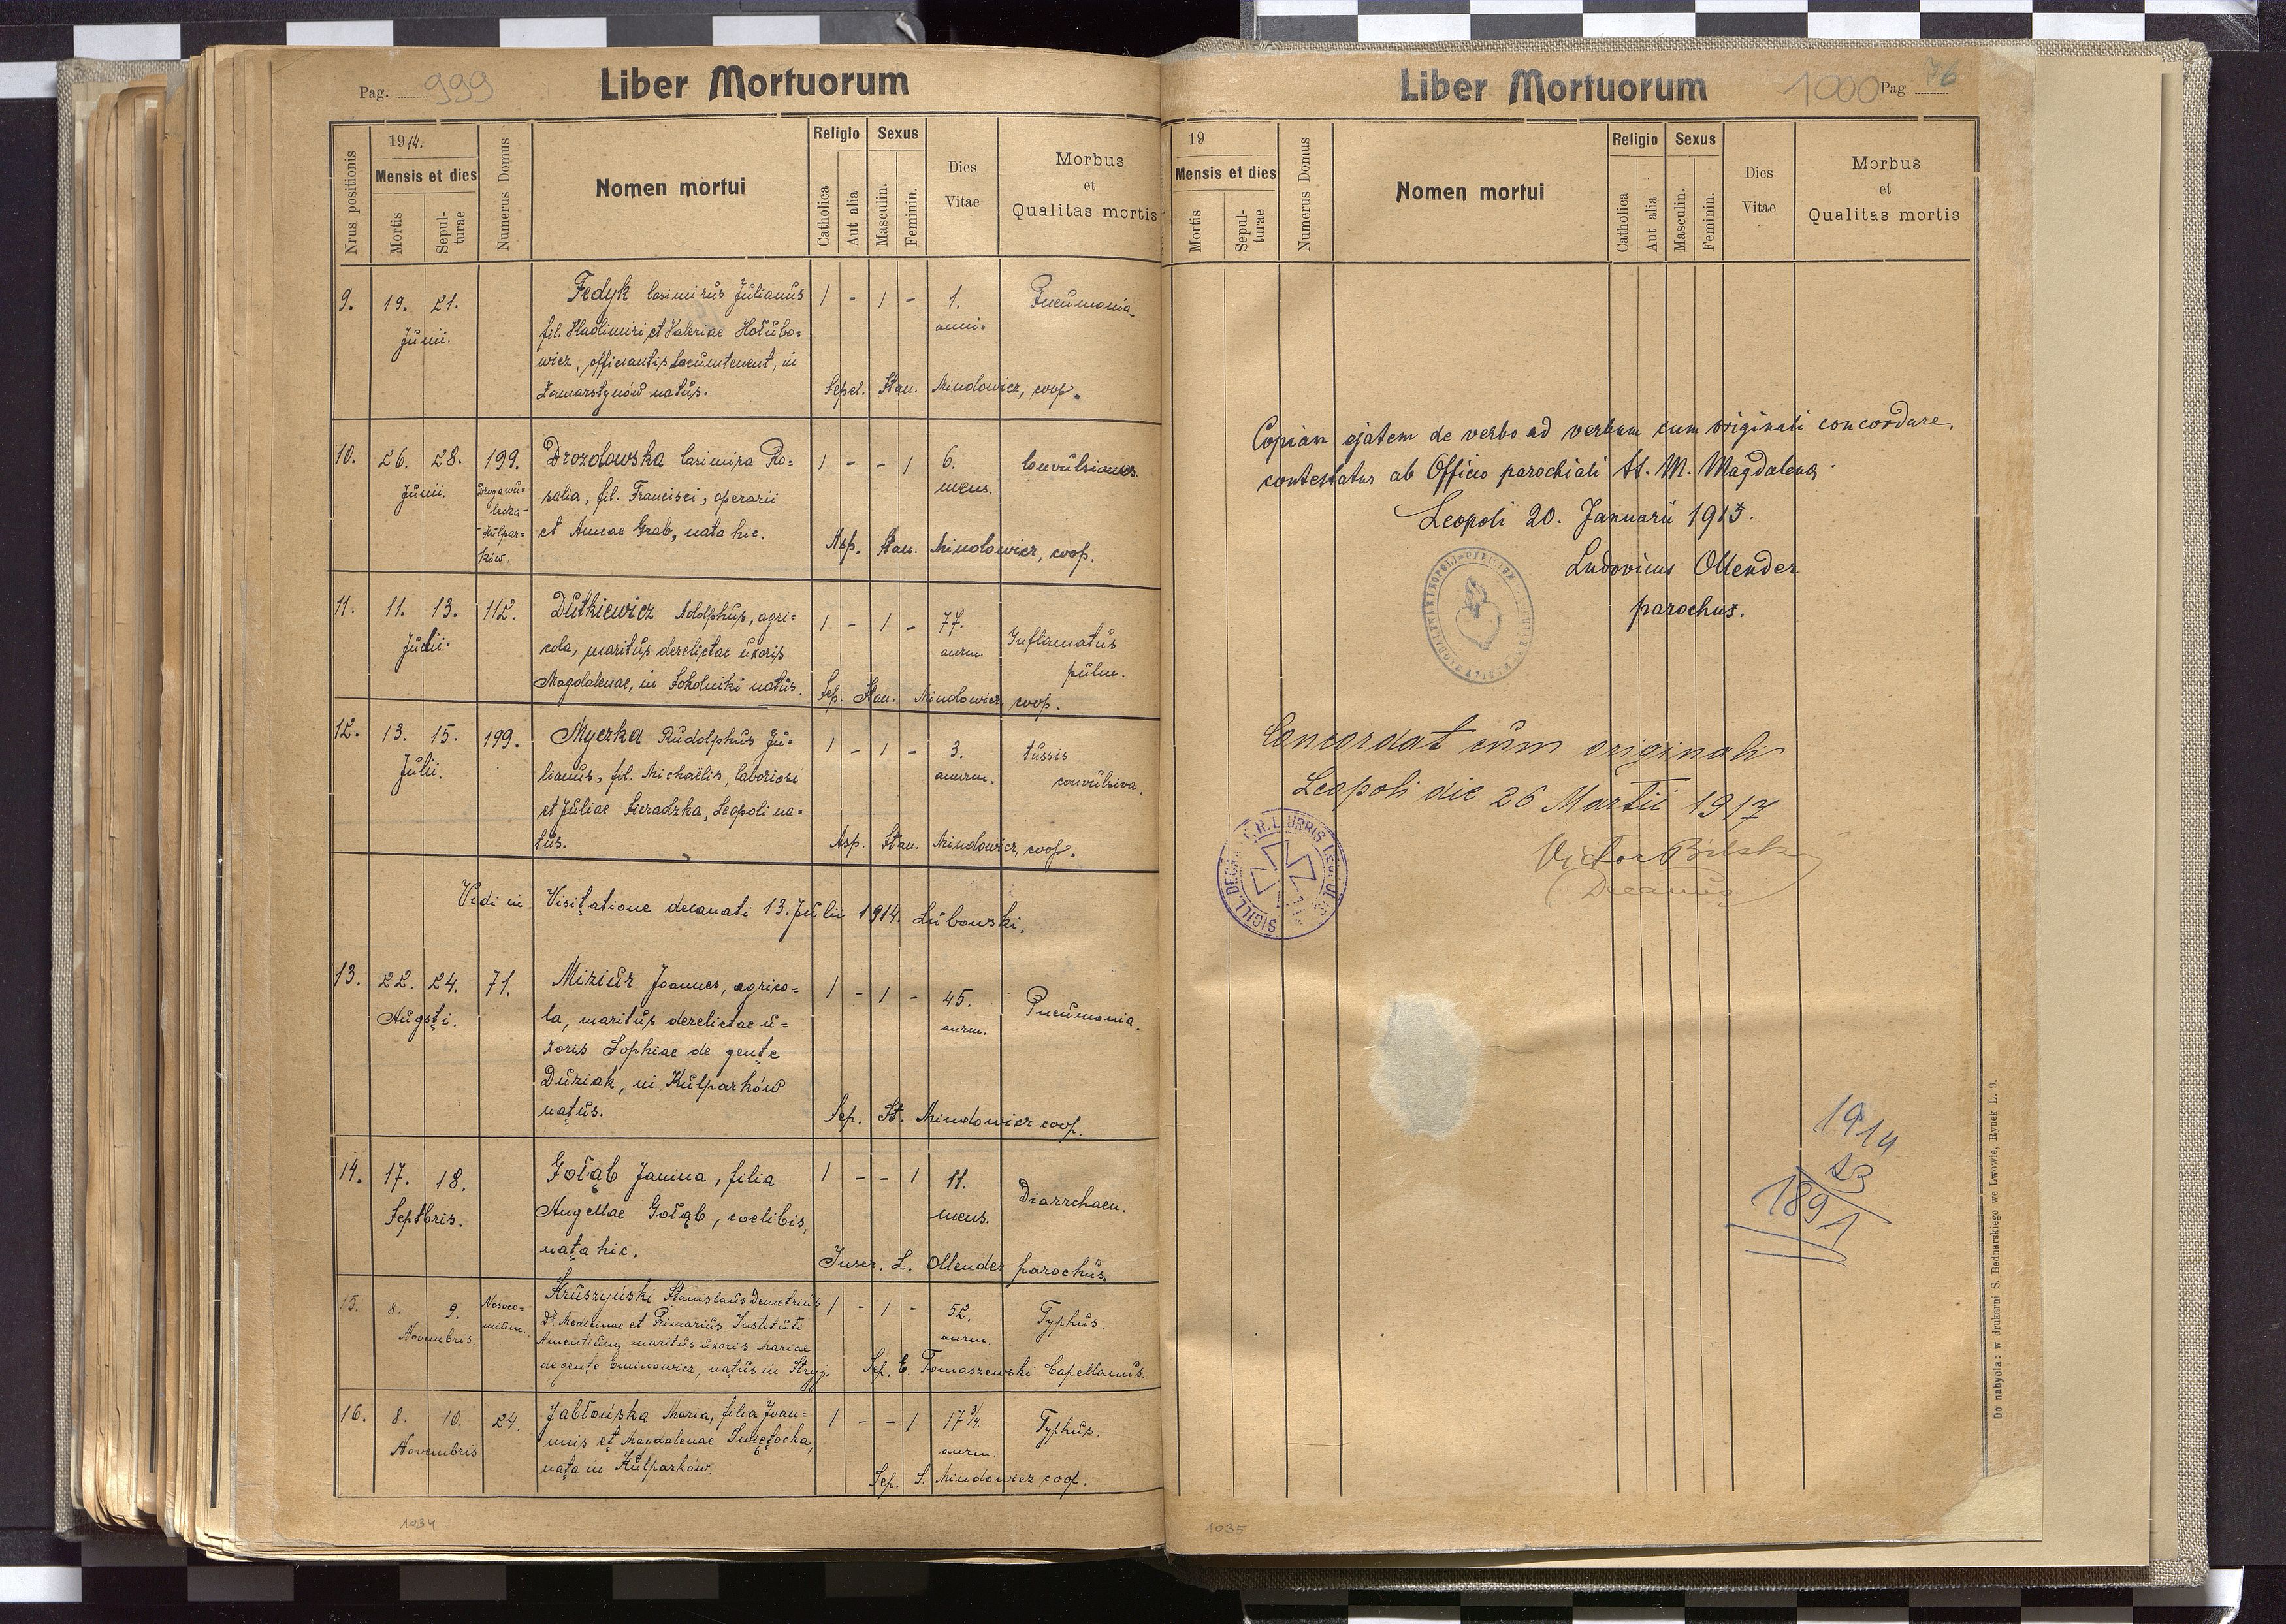 Pag. 999
Liber Mortuorum
Nrus positionis
1914.
Mensis et dies
Mortis
Sepul-
turae
Numerus Domus
Nomen mortui
Religio
Catholica
Aut alia
Sexus
Masculin.
Feminin.
Dies
Vitae
Morbus
et
Qualitas mortis
9. 19. 21. Fedyk Casimirus Julianus 1 - 1 - 1. Pneumonia
Junii. fil. Wladimiri et Valeriae Hołubo= anni.
wicz, officiantis Locumtenent, in
Zamarstynów natus. Sepel. Stan. Mindowicz, coop.
10. 26. 28. 199. Drozdowska Casimira Ro= 1 - - 1 6. Convulsiones
Junii. salia, fil. Francisci, operarii mens.
Kulpar=
ków.
et Annae Grab, nata hic. Asp. Stan. Mindowicz, coop.
11. 11. 13. 112. Dutkiewicz Adolphus, agri= 1 - 1 - 77. Inflamatus
Julii. cola, maritus derelictae uxoris annr. pulm.
Magdalenae, in Sokolniki natus. Sep. Stan. Mindowicz, coop.
12. 13. 15. 199. Myczka Rudolphus Ju= 1 - 1 - 3. tussis
Julii. lianus, fil. Michaëlis, laboriosi annrm. convulsiva.
et Juliae Sieradzka, Leopoli na=
tus. Asp. Stan. Mindowicz, coop.
Vidi in Visitatione decanati 13. Julii 1914. Lubowski.
13. 22. 24. 71. Miziur Joannes, agrico= 1 - 1 - 45. Pneumonia.
Augsti. la, maritus derelictae u= annrm.
xoris Sophiae de gente
Duziak, in Kulparków
natus. Sep. St. Mindowicz coop.
14. 17. 18. Gołąb Janina, filia 1 - - 1 11. Diarrchaen.
Septbris. Angellae Gołąb, coelibis, mens.
nata hic. Inscr. L. Ollender parochus.
15. 8. 9. Nosoco=
mium. Kruszyński Stanislaus Demetrius 1 - 1 - 52. Typhus.
Novembris. Dr. Medicinae et Primarius Instituti annrm.
Amentium, maritus uxoris Mariae
de gente Eminowicz, natus in Stryj. Sep. E. Tomaszewski Capellanus.
16. 8. 10. 24. Jabłońska Maria, filia Joan= 1 - - 1 17 3/4. Typhus.
Novembris nnis et Magdalenae Swiętocka, annrm.
nata in Kulparków. Sep. S. Mindowicz coop.
1034
Liber Mortuorum
1000 Pag. 76
19
Mensis et dies
Mortis
Sepul-
turae
Numerus Domus
Nomen mortui
Religio
Catholica
Aut alia
Sexus
Masculin.
Feminin.
Dies
Vitae
Morbus
et
Qualitas mortis
Copiam ejatem de verbo ad verbum cum originali concordare,
contestatur ab Officio parochiali St. M. Magdalenae
Leopoli 20. Januarii 1915.
Ludovicus Ollender
parochus.
Concordat cum originali
Leopoli die 26 Martii 1917
Victor Bilski
Decanus
1914
23
1891
Do nabycia: w drukarni S. Bednarskiego we Lwowie, Rynek L. 9.
1035